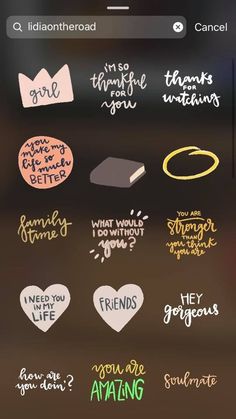 lidiaontheroad
Cancel
girl
i'm so
thankful
FOR
you
thanks
FOR
watching
you
make my
life so
much
BETTER
family
time
WHAT WOULD
I DO WITHOUT
you?
YOU ARE
stronger
THAN
you think
you are
I NEED YOU
IN MY
LIFE
FRIENDS
HEY
gorgeous
how are
you doin'?
you are
AMAZING
soulmate